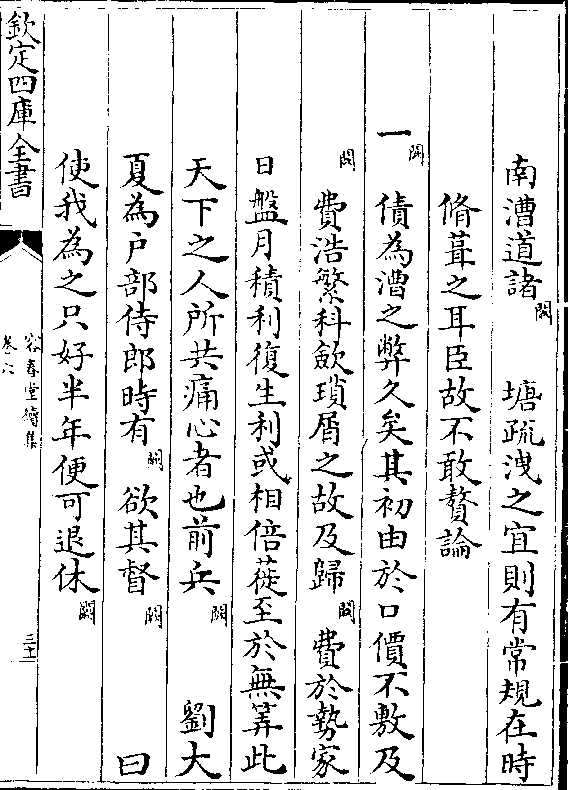 南漕道諸闕塘疏洩之宜則有常規在時
脩葺之耳臣故不敢贅論
一闕債為漕之弊久矣其初由於口價不敷及
闕費浩繁科歛瑣屑之故及歸闕費於勢家
日盤月積利復生利或相倍蓰至於無筭此
天下之人所共痛心者也前兵闕劉大
夏為戶部侍郎時有闕欲其督闕曰
使我為之只好半年便可退休闕
欽定四庫全書
容春堂續集
卷六
三十二